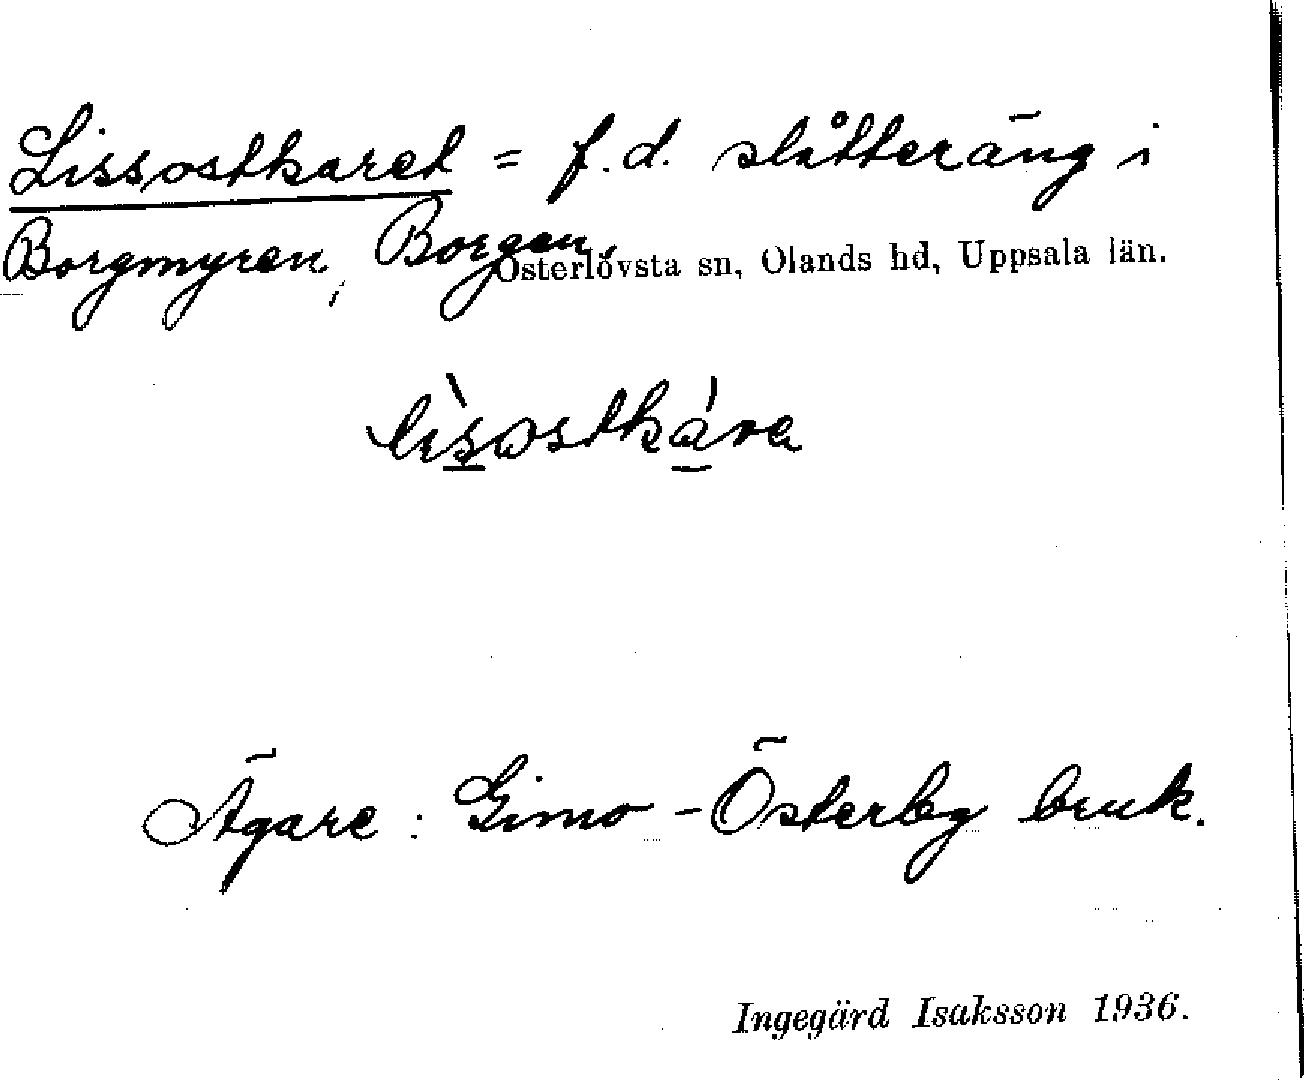 Lissostkaret = f.d. slåtteräng i
Borgmyren, Borgen,
Österlövsta sn, Olands hd, Uppsala län.
lìsostkára
Ägare: Gimo-Österby bruk.
Ingegärd Isaksson 1936.